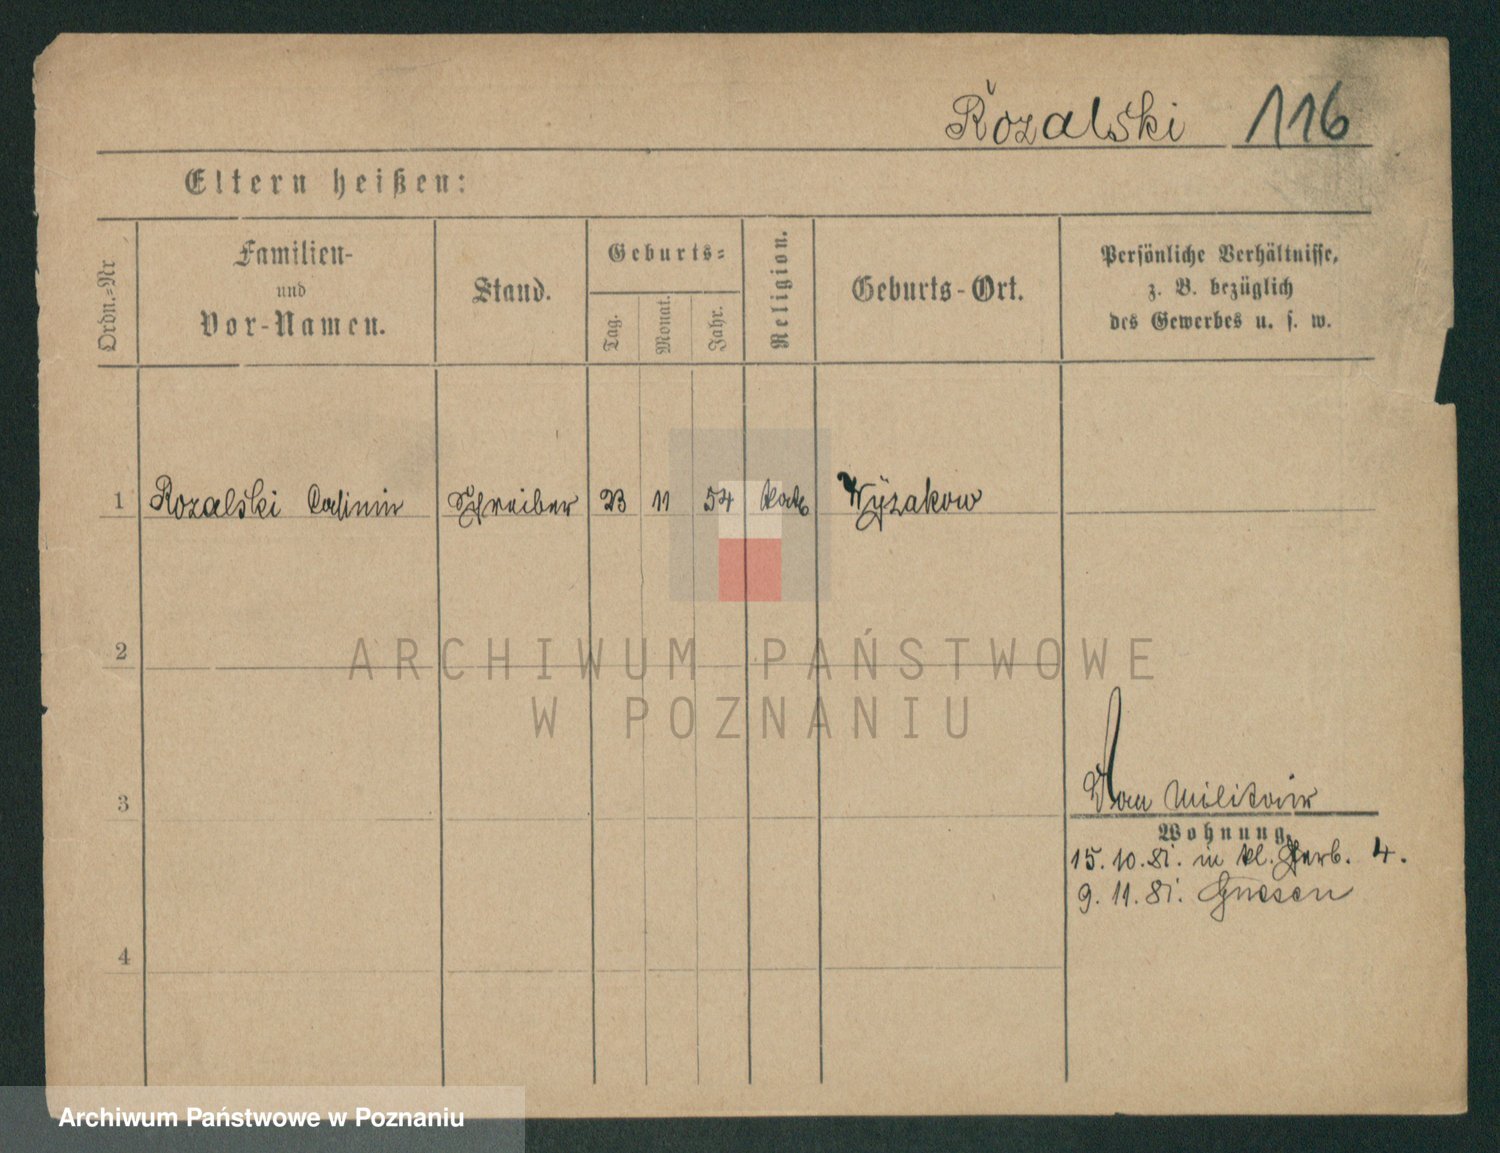 Rozalski 116
Eltern heißen:
Ordn.-Nr
Familien-
und
Vor-Namen.
Stand.
Geburts-
Tag.
Monat.
Jahr.
Religion.
Geburts-Ort.
Persönliche Verhältnisse,
z. B. bezüglich
des Gewerbes u. s. w.
1 Rozalski Casimir Schreiber 23 11 54 kath Wÿzakow
2
ARCHIWUM PAŃSTWOWE
W POZNANIU
3
Vom Militair
Wohnung.
15. 10. 81. in kl. Gerb. 4.
9. 11. 81. Gnesen
4
Archiwum Państwowe w Poznaniu